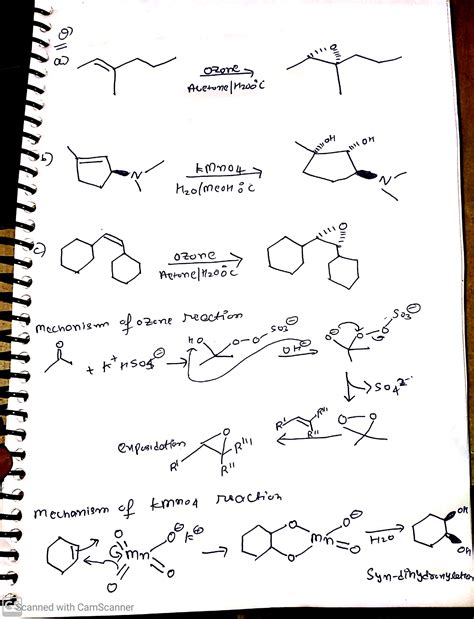 a)
ozone
Acetone/H2O 0°C
O
b)
N
KMnO4
H2O/MeOH 0°C
OH
OH
N
c)
ozone
Acetone/H2O 0°C
O
Mechanism of ozone reaction
O
+ K+ HSO5⊖
HO
O-O
SO3⊖
OH⊖
O⊖
O-O
SO3⊖
SO4 2-
epoxidation
O
R'
R''
R'''
R'
R''
R'''
O-O
Mechanism of KMnO4 reaction
O
Mn
O⊖ K⊕
O
O
O
O
Mn
O⊖
O
H2O
OH
OH
Syn-dihydroxylation
Scanned with CamScanner